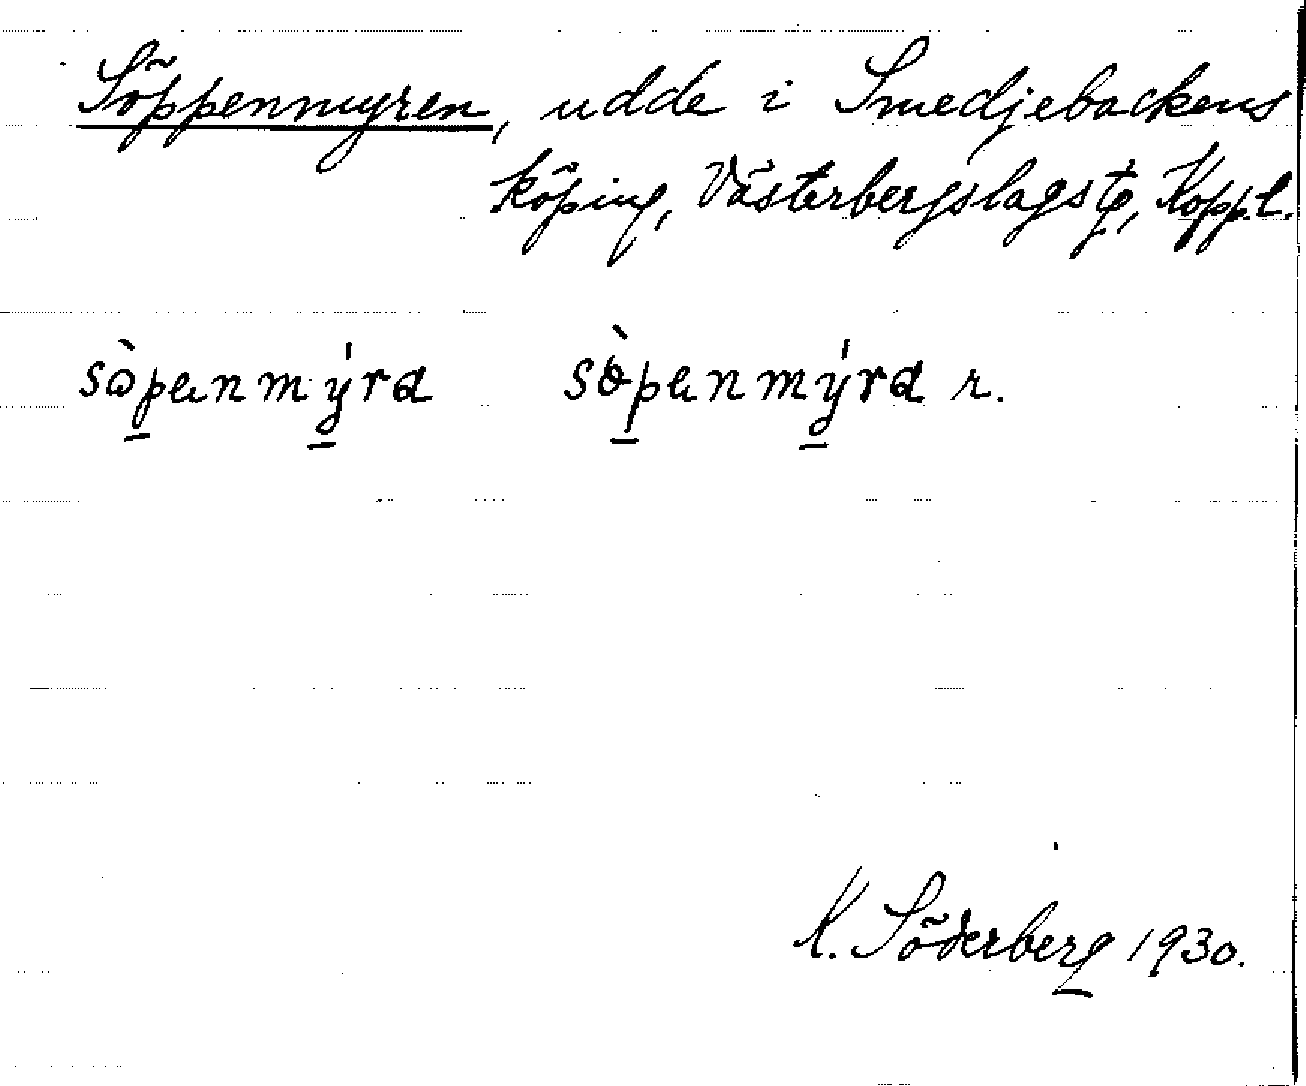 Söppenmyren, udde i Smedjebackens
köping, Västerbergslags tg, Koppl.
sòpenmýra sòpenmýra r.
K. Söderberg 1930.